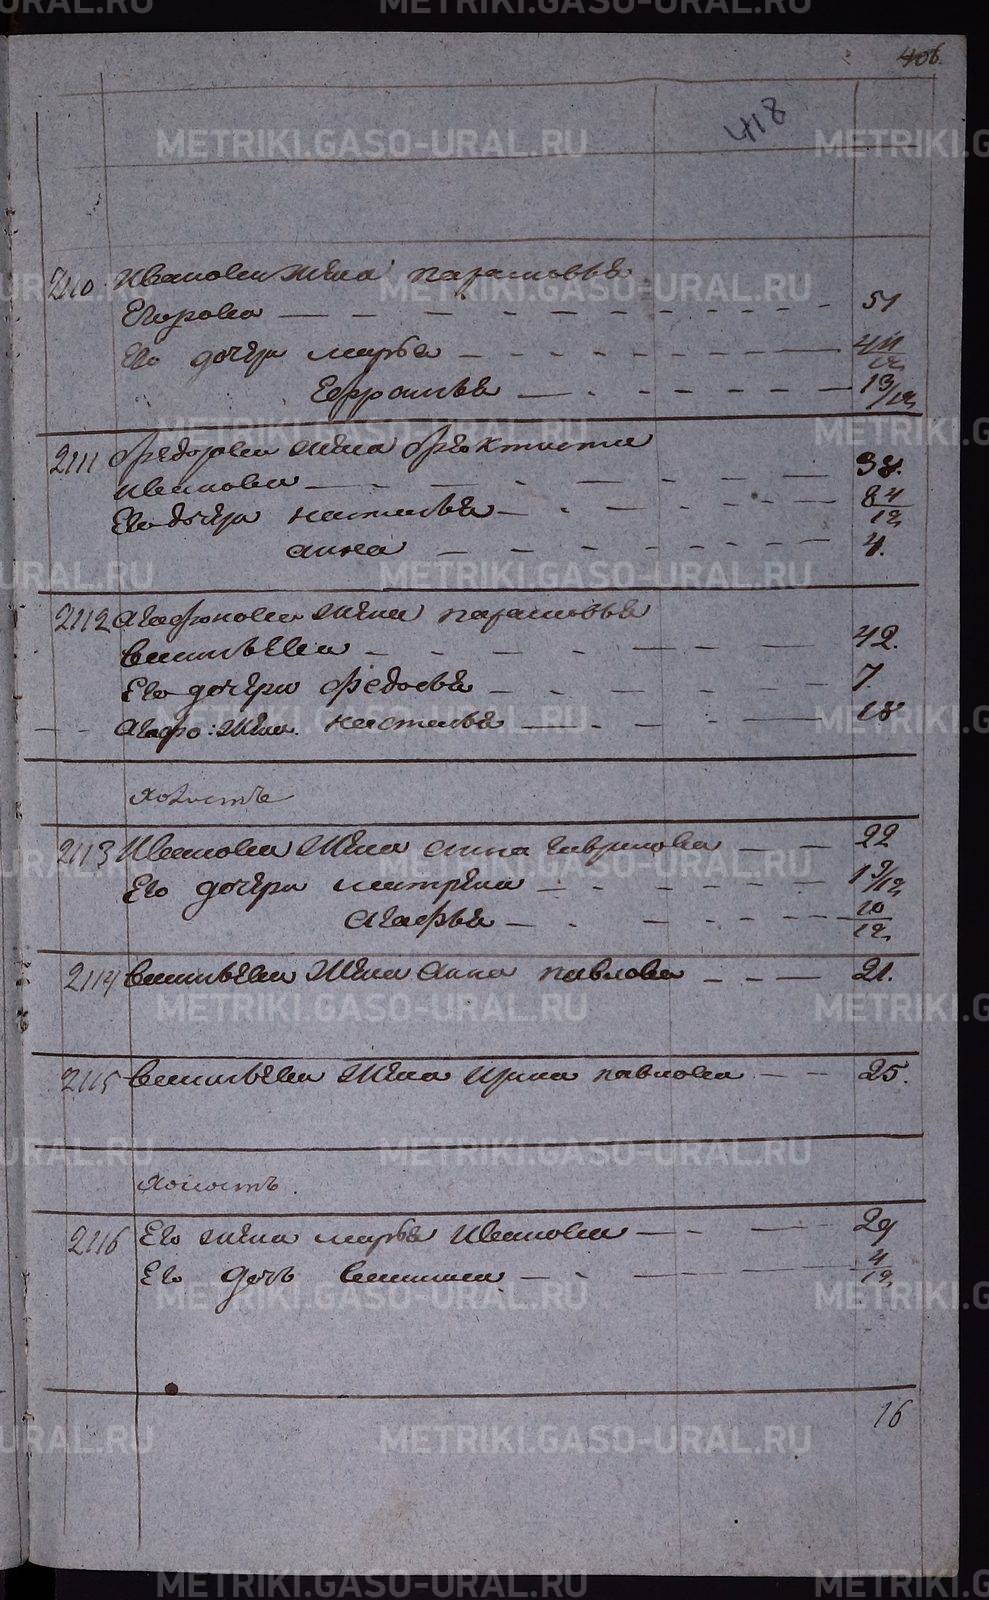 406.
418
2110 Иванова жена парасковья
Егорова 51
Его дочери марья 4 4/12
Ефросинья 1 3/12
2111 Федорова жена Феоктиста
Иванова 38.
Его дочери настасья 8 4/12
анна 4.
2112 Агафонова жена парасковья
Васильева 42.
Его дочери Федосья 7
Агафо: жена настасья 18
Холостъ
2113 Иванова жена анна гаврилова 22
Его дочери матрена 1 9/12
Агафья 10/12
2114 Васильева жена Анна павлова 21.
2115 Васильева жена Ирина павлова 25.
Холостъ.
2116 Его жена марья Иванова 29
Его дочь Василиса 4/12
16
METRIKI.GASO-URAL.RU